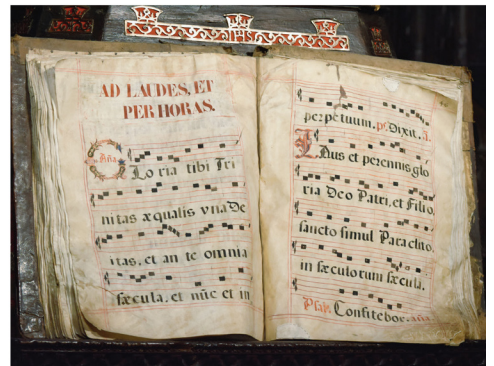 IHS
AD LAUDES, ET
PER HORAS.
Aña.
Gloria tibi Tri
nitas æqualis vna De
itas, et an te omnia
sæcula, et nūc et in
perpetuum. ps. Dixit. A.
Laus et perennis glo
ria Deo Patri, et Filio,
sancto simul Paraclito,
in sæculorum sæcula.
Psal. Confitebor. aña.